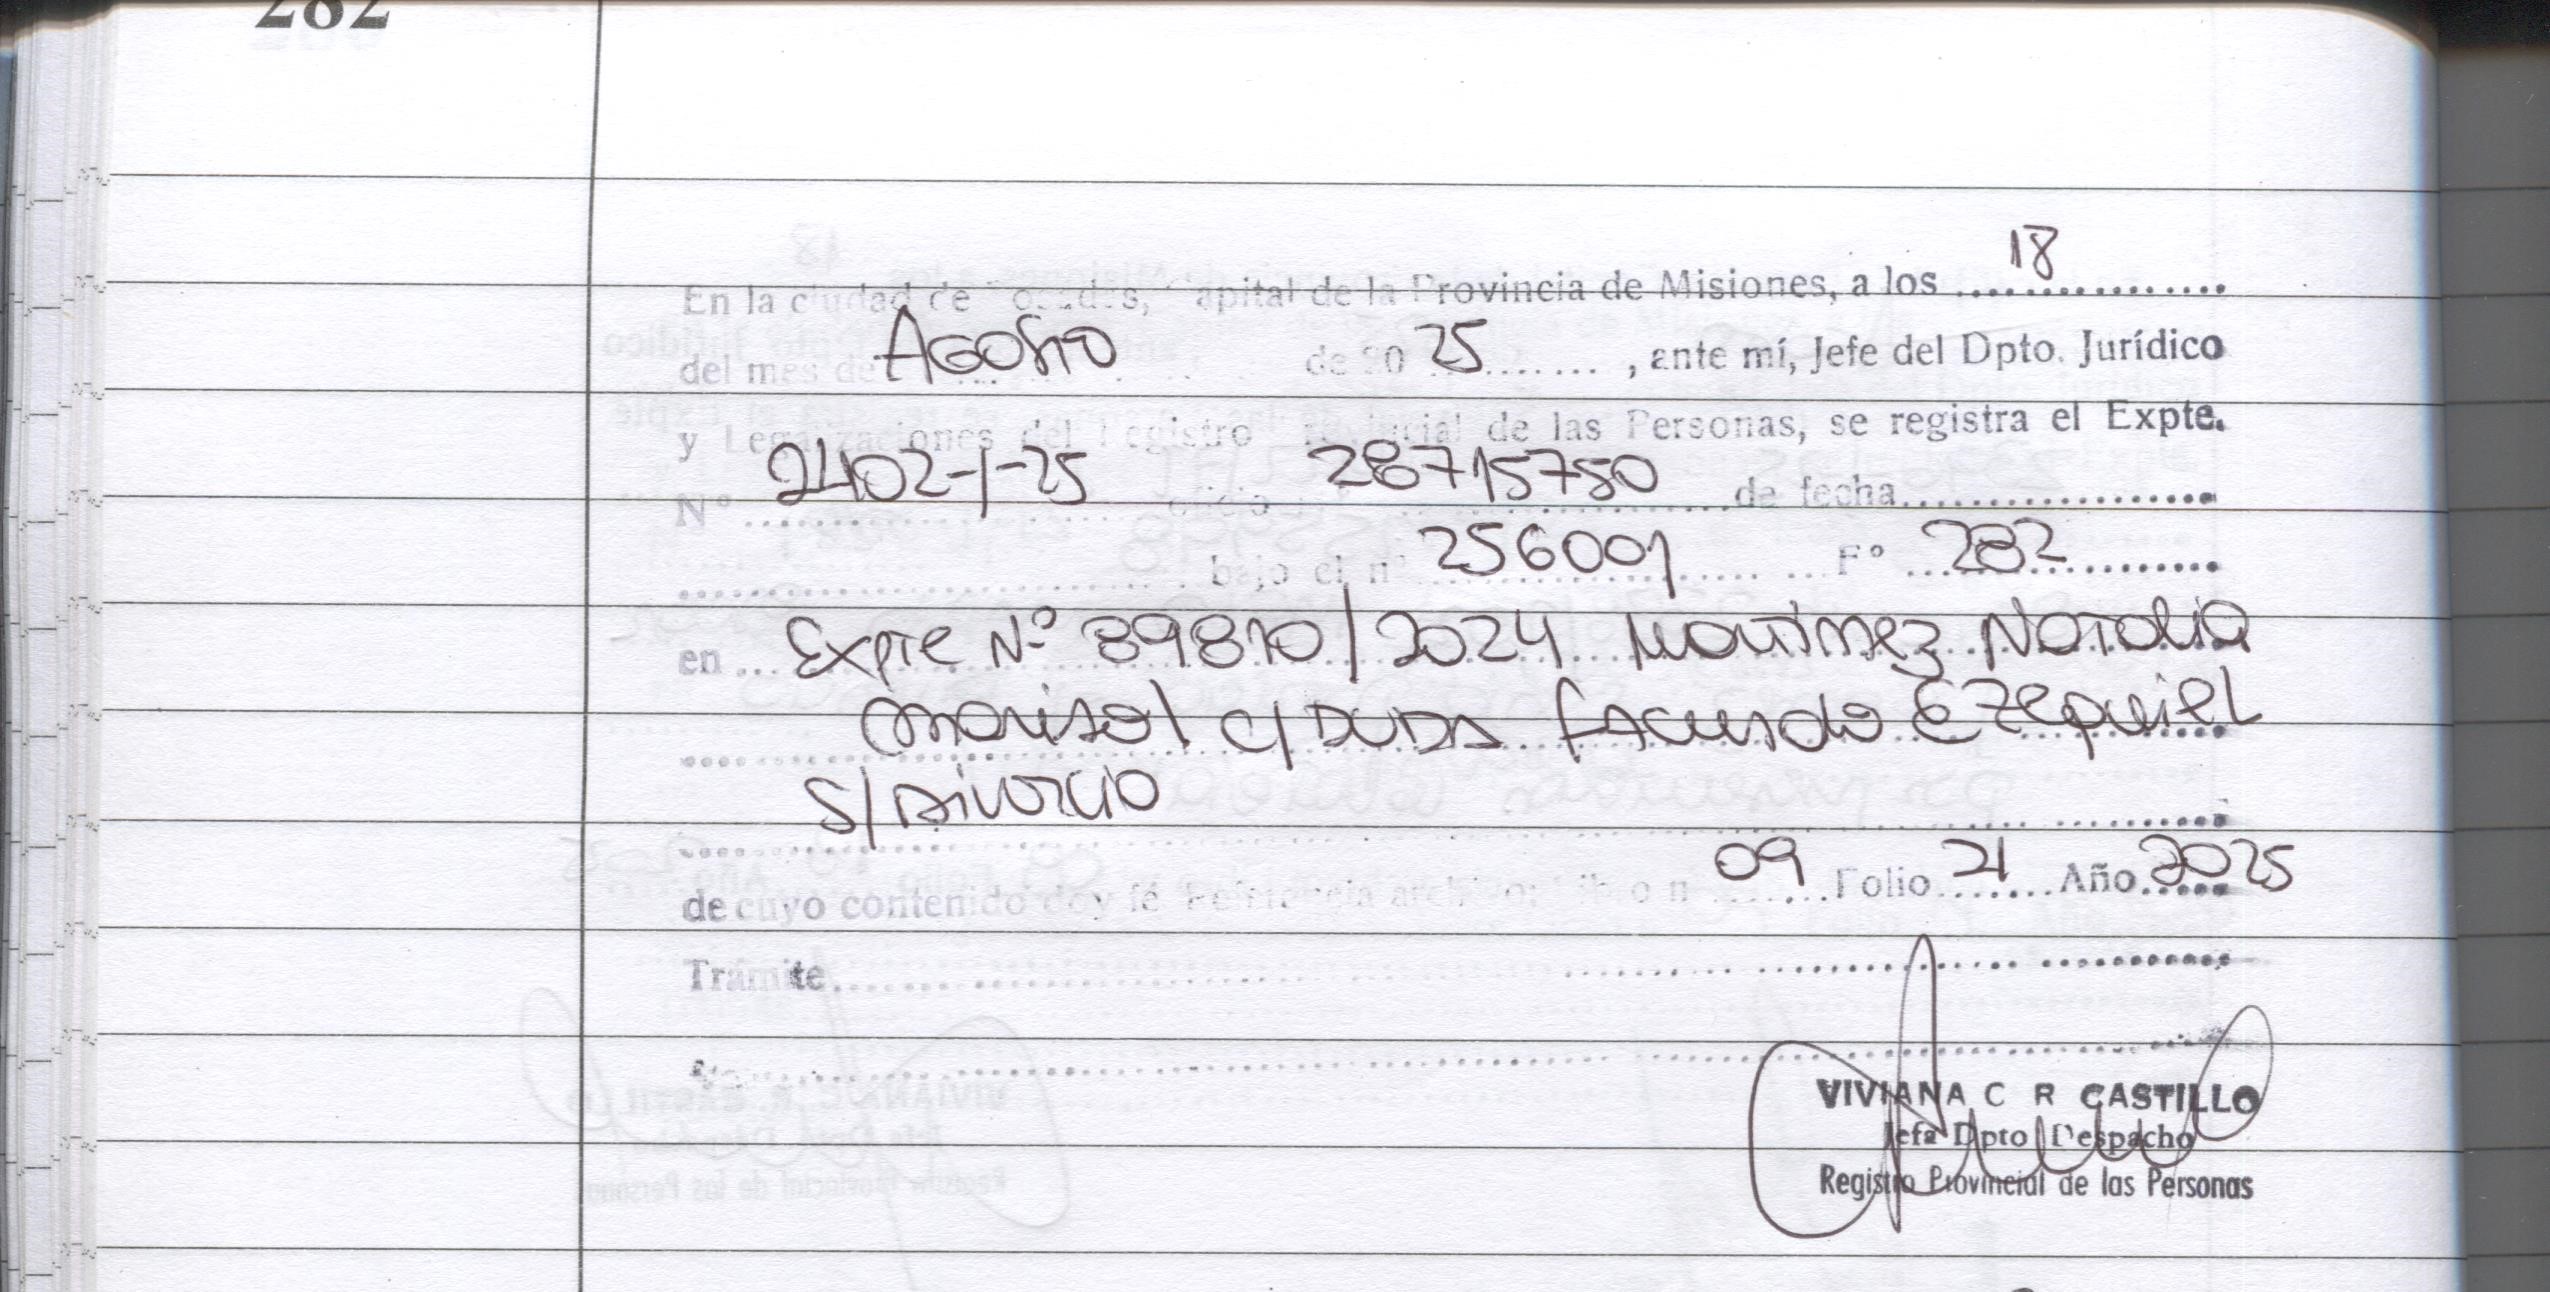 282
En la ciudad de Posadas, Capital de la Provincia de Misiones, a los 18
del mes de Agosto de 20 25, ante mí, Jefe del Dpto. Jurídico
y Legalizaciones del Registro Provincial de las Personas, se registra el Expte.
Nº 2402-1-25 oficio nº 28715750 de fecha
bajo el nº 256001 Fº 282
en Expte Nº 89810/2024 Martinez Natalia
Marisol c/ DUDA Facundo Ezequiel
S/ Divorcio
de cuyo contenido doy fé Referencia archivo: Libro nº 09 Folio 21 Año 2025
Trámite
VIVIANA C R CASTILLO
Jefa Dpto Despacho
Registro Provincial de las Personas